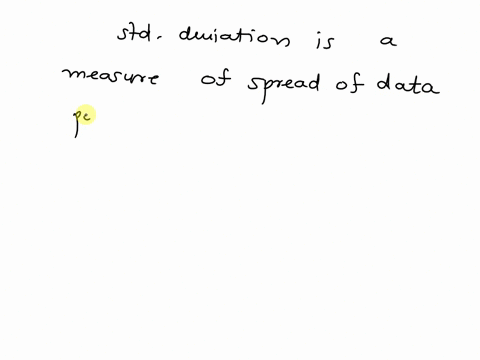 std. deviation is a
measure of spread of data
po